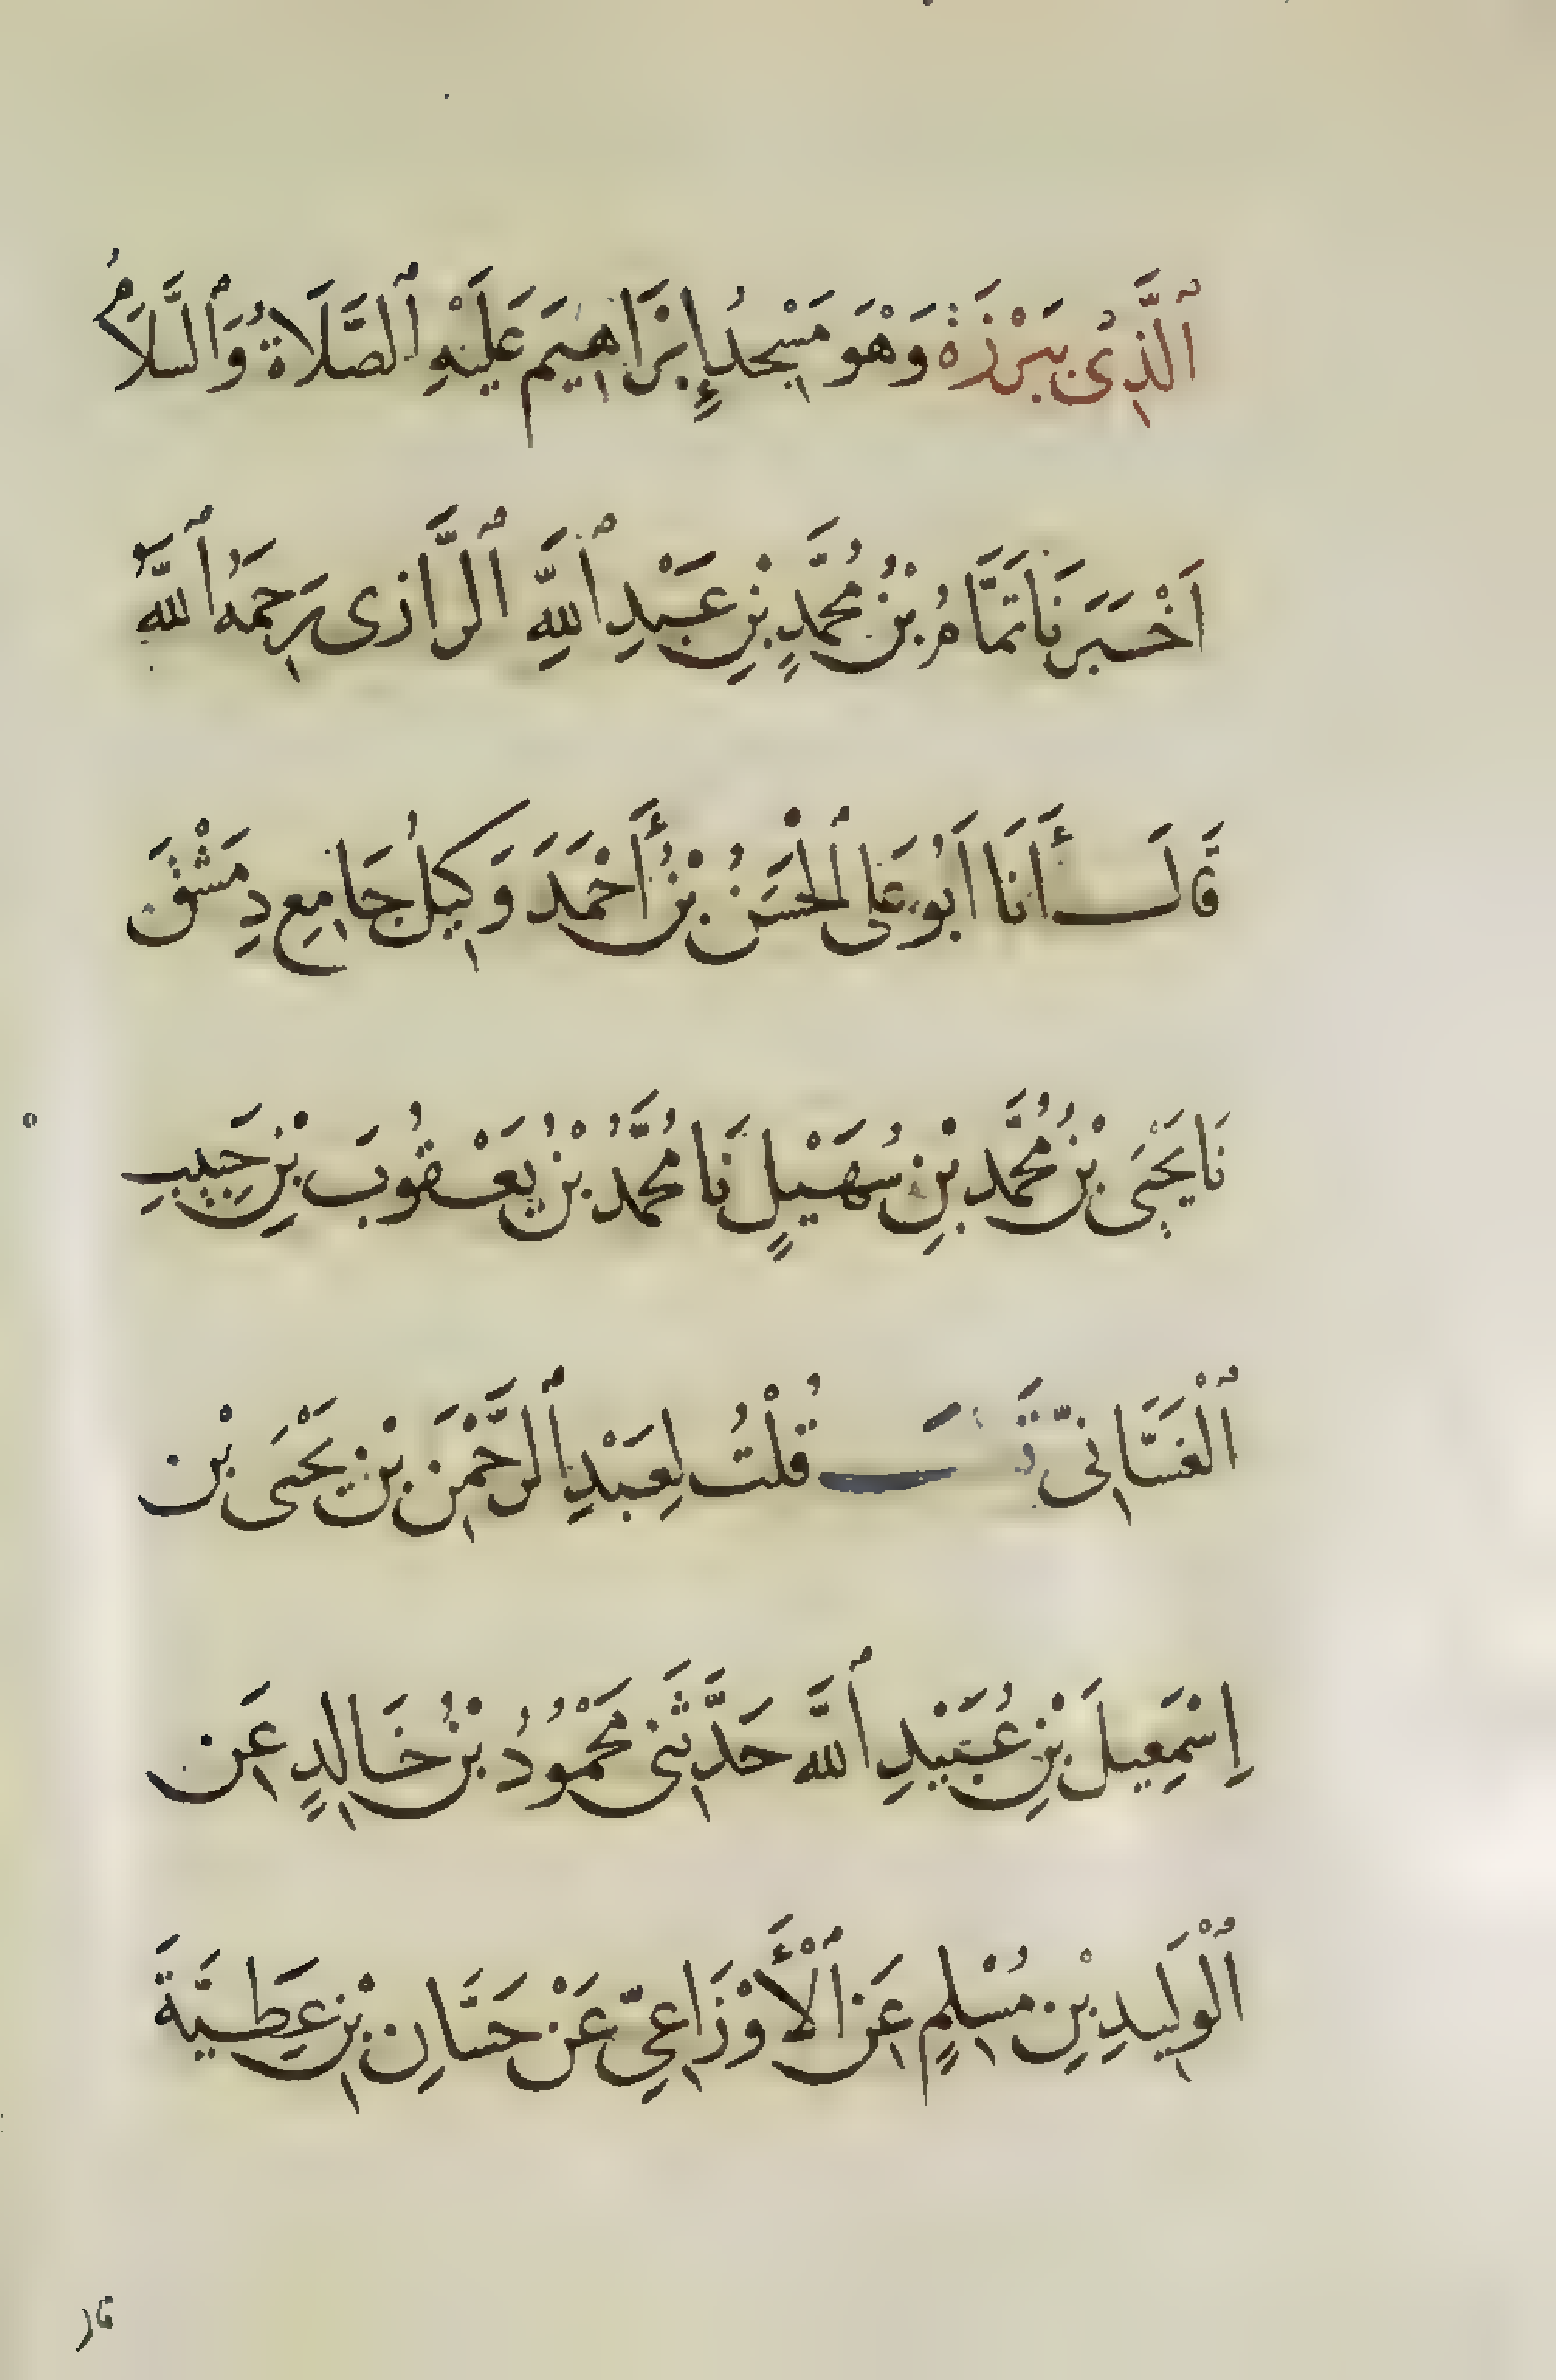 ٱلَّذِى بِبَرْزَةَ وَهْوَ مَسْجِدُ إِبْرَاهِيمَ عَلَيْهِ ٱلصَّلَاةُ وَٱلسَّلَامُ
اَخْبَرَنَا تَمَّامُ بْنُ مُحَمَّدٍ بْنِ عَبْدِ ٱللَّهِ ٱلرَّازِى رَحِمَهُ ٱللَّهُ
قَالَ أَنَا اَبُو عَلِى ٱلْحَسَنُ بْنُ أَحْمَدَ وَكِيلُ جَامِعِ دِمَشْقَ
نَا يَحْيَى بْنُ مُحَمَّد بْنِ سُهَيْلٍ نَا مُحَمَّدُ بْنُ يَعْقُوبَ بْنِ حَبِيبِ
ٱلْغَسَّانِىّ قَالَ قُلْتُ لِعَبْدِ ٱلرَّحْمٰنِ بْنِ يَحْيَى بْن
اِسْمٰعِيلَ بْنِ عُبَيْدِ ٱللَّه حَدَّثَنِى مَحْمُودُ بْنُ خَالِدٍ عَن
ٱلْوَلِيدِ بْنِ مُسْلِمٍ عَنِ ٱلْأَوْزَاعِىِّ عَنْ حَسَّانِ بْنِ عَطِيَّةَ